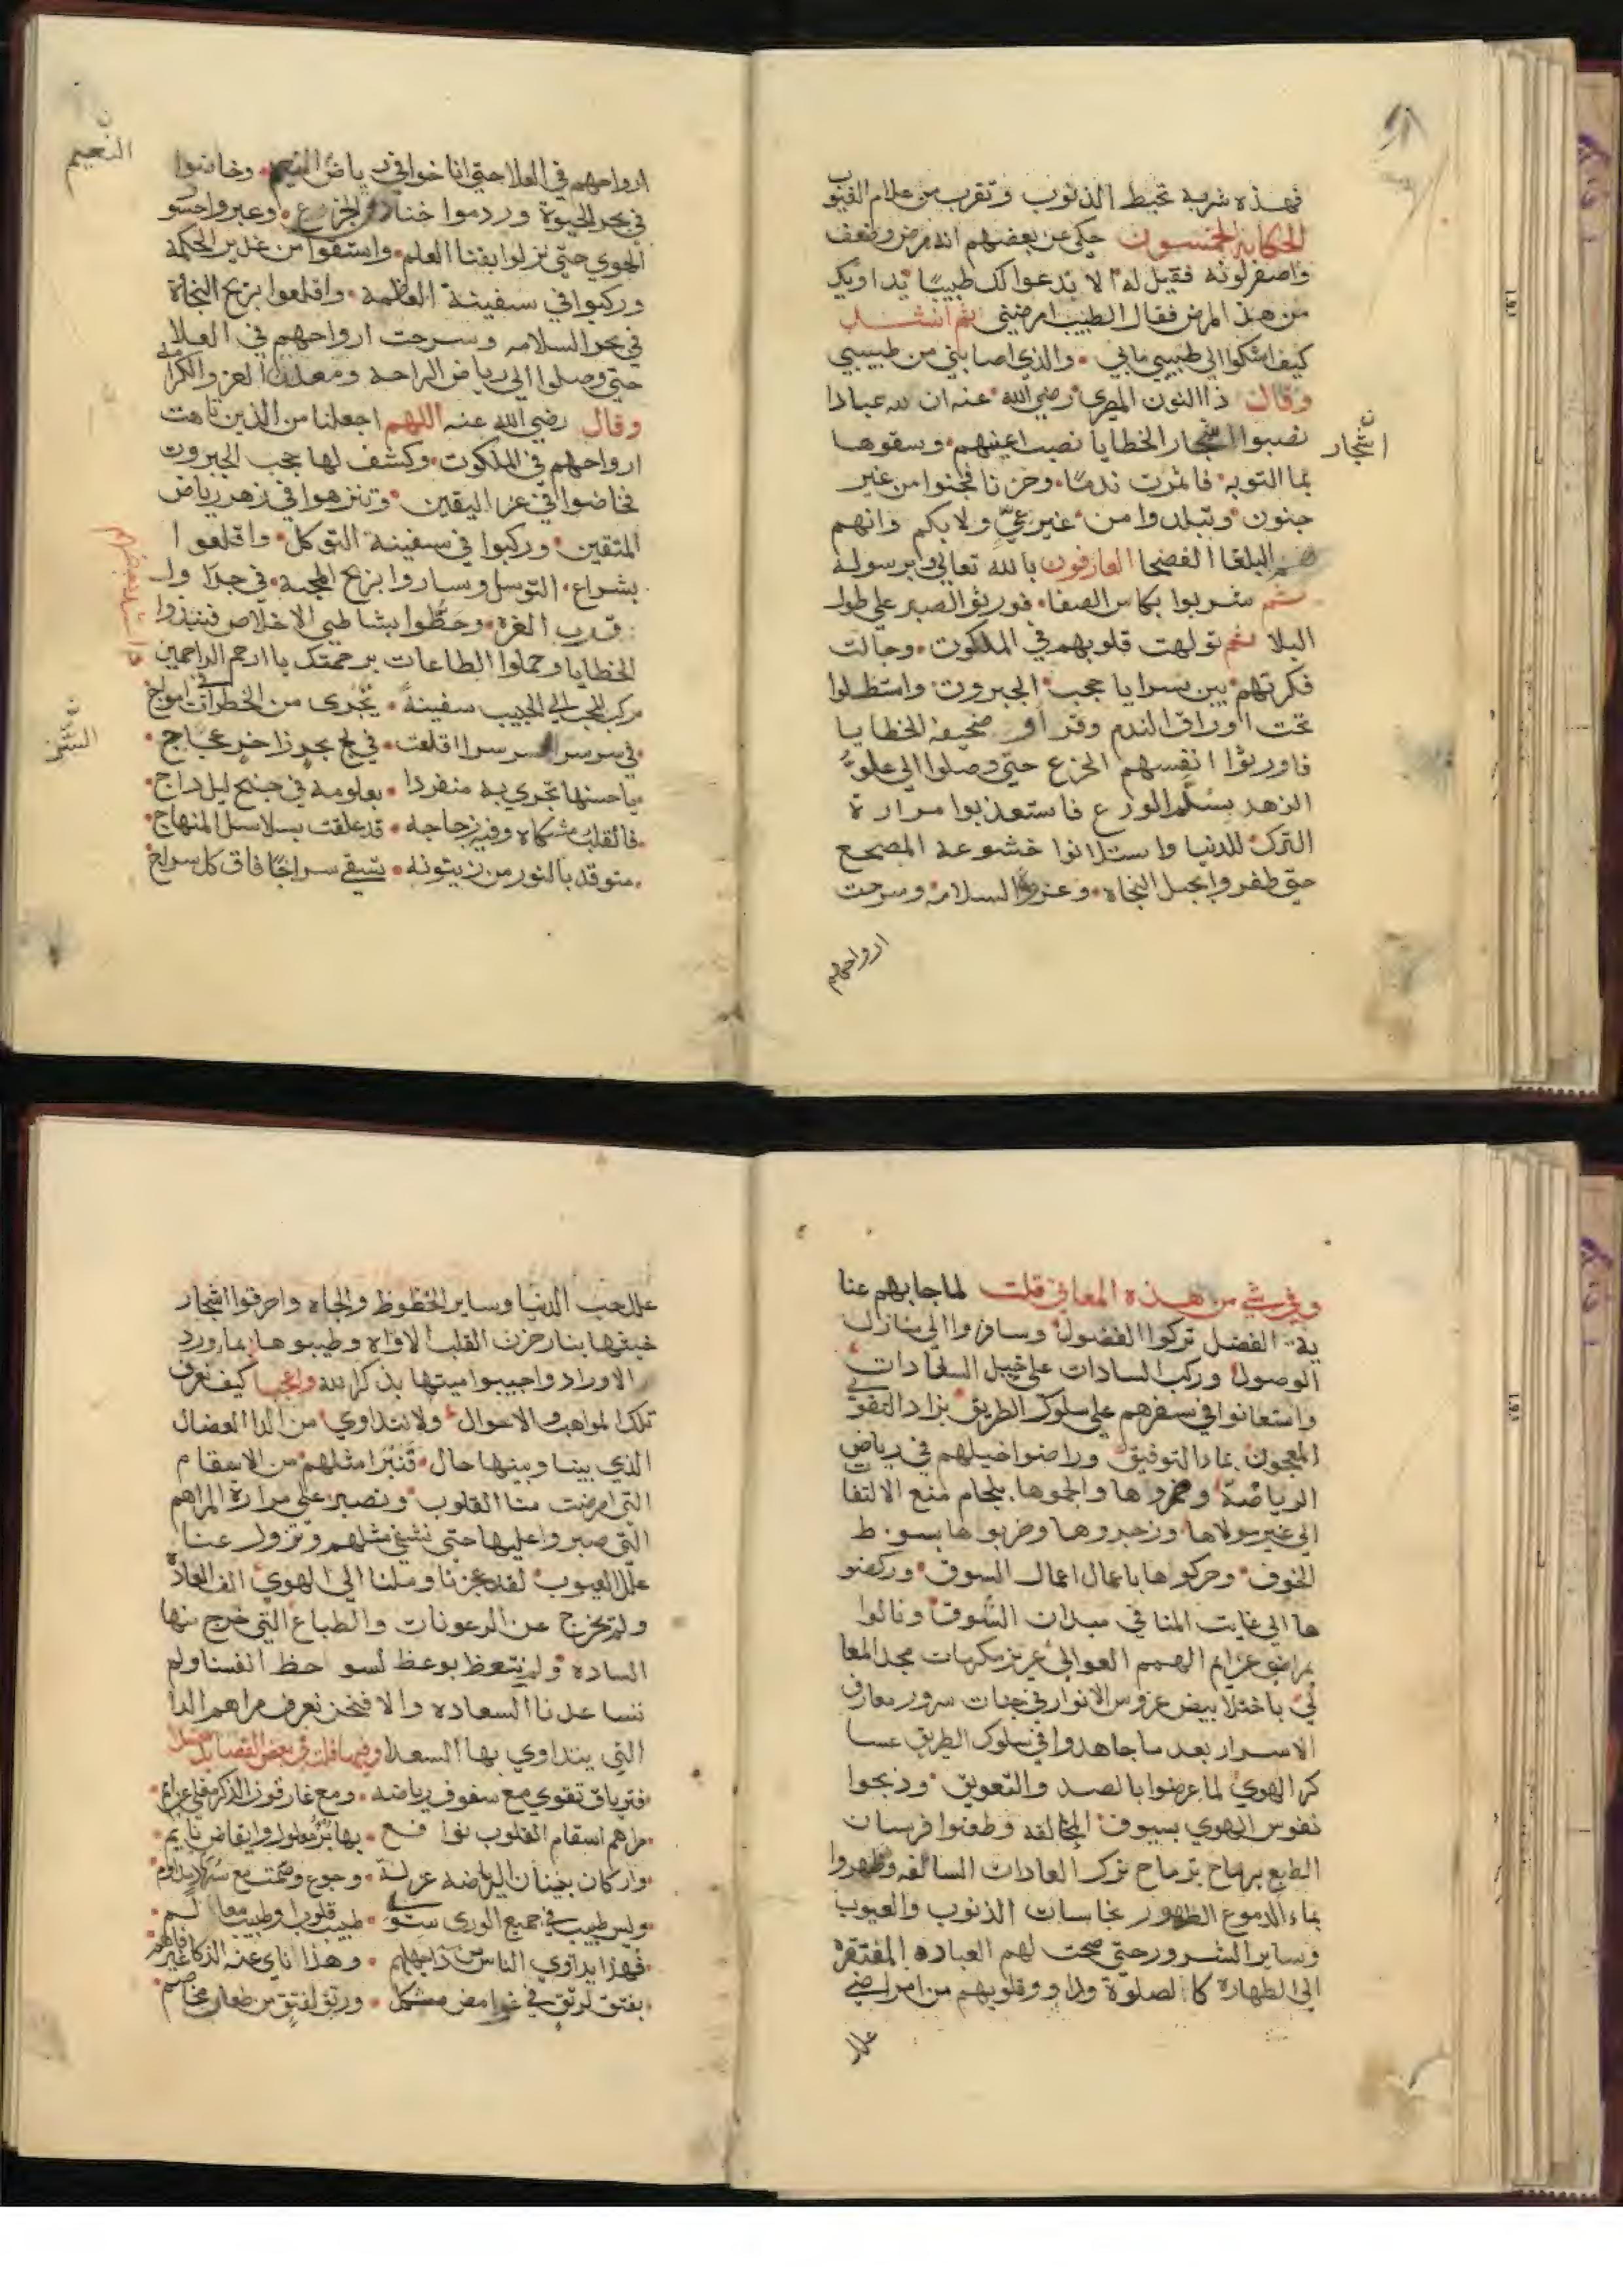 فهذه شربة تحبط الذنوب وتقرب من علام الغيوب
الحكاية الخمسون حكي عن بعضهم انه مرض وضعف
واصفر لونه فقيل له الا ندعوا لك طبيبًا يداويك
من هذا المرض فقال الطبيب امرضني ثم انشد
كيف اشكوا الي طبيبي مابي والذي اصابني من طبيبي
وقال ذا النون المصري رضي الله عنه ان لله عبادا
نصبوا اشجار الخطايا نصب اعينهم وسقوها
اشجار
بما التوبه فاثمرت ندمًا وحزنا فجنوا من غير
جنون وتبلدوا من غير عيّ ولا بكم وانهم
هم البلغا الفصحا العارفون بالله تعالي وبرسوله
ثم شربوا بكاس الصفا فورثوا الصبر علي طول
البلا ثم تولهت قلوبهم في الملكوت وجالت
فكرتهم بين سرايا حجب الجبروت واستظلوا
تحت اوراق الندم وقراوا صحيفة الخطايا
فاورثوا انفسهم الجزع حتي وصلوا الي علو
الزهد بسلم الورع فاستعذبوا مرارة
الترك للدنيا واستلانوا خشوعة المضجع
حتي ظفروا بحبل النجاه وعروة السلامه وسرحت
ارواحهم
ارواحهم في العلا حتي اناخوا في رياض النعيم وخاضوا
النعيم
في بحر الحيوة وردموا خنادق الجزع وعبروا جسو
الهوي حتي نزلوا بفنا العلم واستقوا من غدير الحكمة
وركبوا في سفينة العظمة واقلعوا بريح النجاة
في بحر السلامه وسرحت ارواحهم في العلا
حتي وصلوا الي رياض الراحة ومعدن العز والكرا
مة
وقال رضي الله عنه اللهم اجعلنا من الذين تاهت
ارواحهم في الملكوت وكشف لها حجب الجبروت
فخاضوا في عز اليقين وتنزهوا في زهر رياض
المتقين وركبوا في سفينة التوكل واقلعوا
بشراع التوسل وساروا بريح المحبة في جداول
قرب الغرة وحطوا بشاطي الاخلاص فنبذوا
الخطايا وحملوا الطاعات برحمتك يا ارحم الراحمين
مركب المحب الي الحبيب سفينة تجري من الخطرات في امواج
في سر سر السر سرا اقلعت في لج بحر زاخر عجاج
السّر
يا حسنها تجري به منفردا بعلومه في جنح ليل داج
فالقلب مشكاه وفيه زجاجه قد علقت بسلاسل المنهاج
متوقد بالنور من زيتونه تسقي سراجًا فاق كل سراج
وفي شي من هذه المعاني قلت لما جابهم عنا
ية الفضل تركوا الفضول وسافروا الي منازل
الوصول وركب السادات علي خيل السعادات
واستعانوا في سفرهم علي سلوك الطريق بزاد التقوي
المعجون بماد التوفيق وراضوا خيلهم في رياض
الرياضة وضمروها والجموها بلجام منع الالتفا
ت
الي غير مولاها وزجروها وضربوها بسوط
الخوف وحركوها باعمال اعمال السوق وركضو
ها الي غايت المنا في ميدان الشوق ونالوا
براضي عزايم الهمم العوالي عزيز مكرمات مجد المعا
لي باختلا بيض عروس الانوار في جنات سرور معارف
الاسرار بعد ما جاهدوا في سلوك الطريق عسا
كر الهوي لما عرضوا بالصد والتعويق وذبحوا
نفوس الهوي بسيوف المخالفه وطعنوا فرسان
الطبع برماح ترماح ترك العادات السالفه وطهروا
بماء الدموع الطهور نجاسات الذنوب والعيوب
وساير الشرور حتي صحت لهم العباده المفتقرة
الي الطهارة كالصلوة وداووا قلوبهم من امراض
علل
علل حب الدنيا وساير الحظوظ والجاه واحرقوا اشجار
خبثها بنار حزن القلب الاواه وطيبوها بماورد
الاوراد واجيبوا ميتها بذكر الله واعجبا كيف نعرف
تلك المواهب والاحوال ولا نتداوي من الدا العضال
الذي بيننا وبينها حال فنبرا مثلهم من الاسقام
التي امرضت منا القلوب ونصبر علي مرارة المراهم
التي صبروا عليها حتي نشفي مثلهم وتزول عنا
علل العيوب لقد عجزنا وملنا الي الهوي الف العادة
ولم نخرج عن الرعونات والطباع التي خرج منها
الساده ولم نتعظ بوعظ لسو حظ انفسنا ولم
تساعدنا السعاده والا فنحن نعرف مراهم الدا
التي يتداوي بها السعدا وفيها قلت في بعض القصايد
فترياق تقوي مع سفوف رياضه ومع غارقون الذكر
مراهم اسقام القلوب نوافع بها
واركان بنيان الرياضه عزلة وجوع وصمت مع سهر
وليس طبيب في جميع الوري سوي طبيب قلوب وطبيب معالم
فهذا يداوي الناس من دا جهلهم وهذا ناي عنه الذكا غير فاهم
بفتق لرتق في غوامض مشكل ورتق لفتق من طعان مخاصم